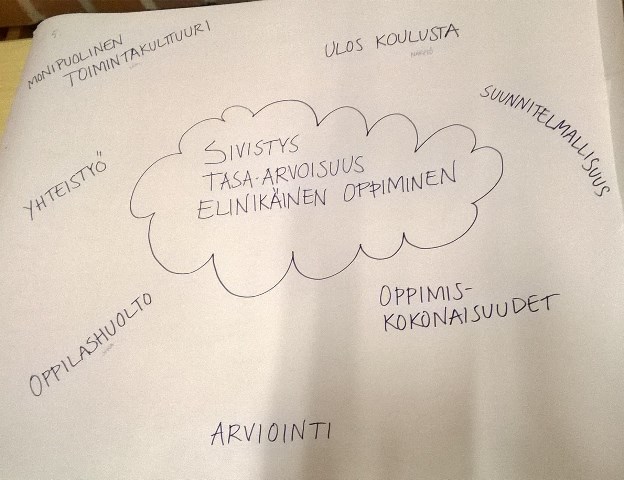 MONIPUOLINEN
TOIMINTAKULTTUURI
ULOS KOULUSTA
SUUNNITELMALLISUUS
YHTEISTYÖ
SIVISTYS
TASA-ARVOISUUS
ELINIKÄINEN OPPIMINEN
OPPILASHUOLTO
OPPIMIS-
KOKONAISUUDET
ARVIOINTI